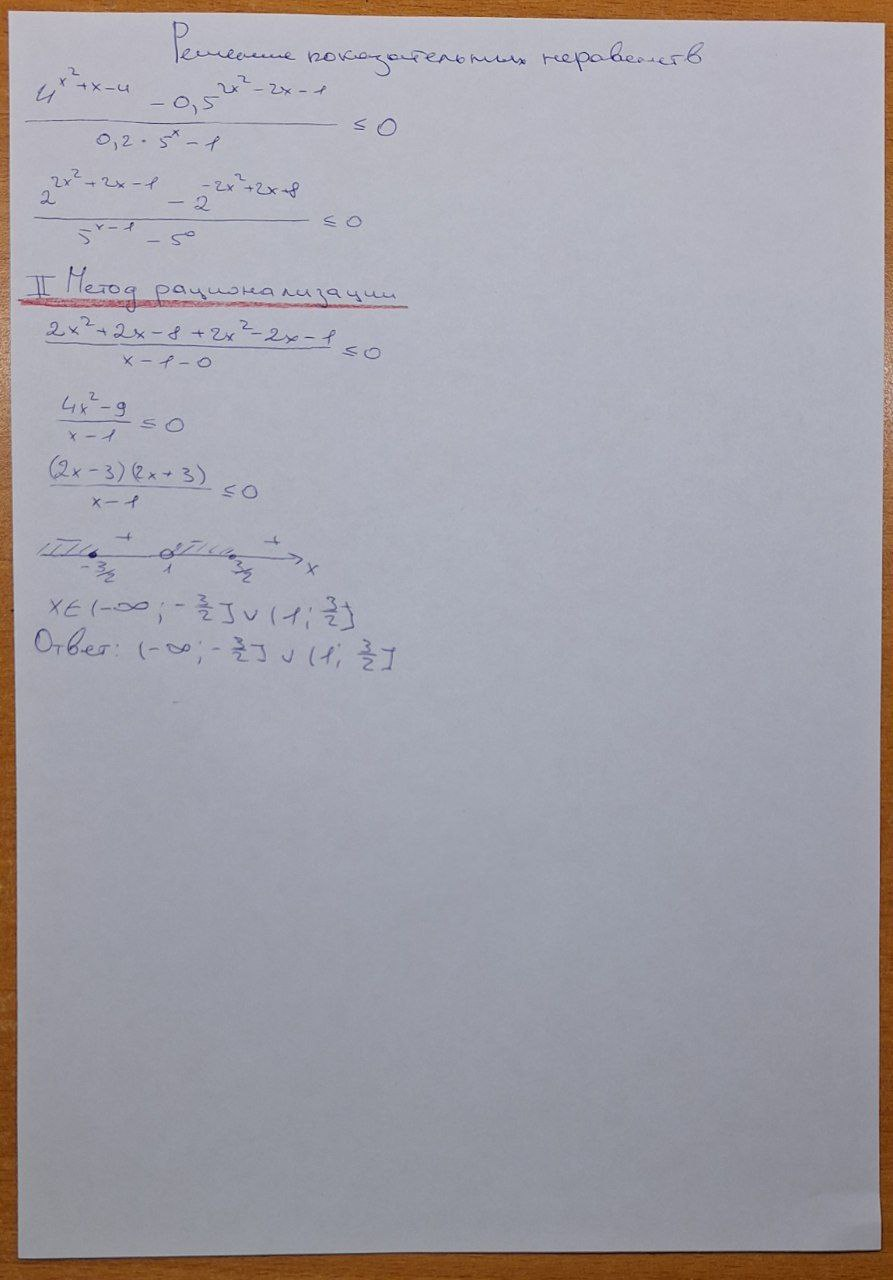 Решение показательных неравенств
(4^(x²+x-4) - 0,5^(2x²-2x-1)) / (0,2 · 5^x - 1) ≤ 0
(2^(2x²+2x-1) - 2^(-2x²+2x+8)) / (5^(x-1) - 5^0) ≤ 0
II Метод рационализации
(2x²+2x-8+2x²-2x-1) / (x-1-0) ≤ 0
(4x²-9) / (x-1) ≤ 0
((2x-3)(2x+3)) / (x-1) ≤ 0
+ +
-3/2 1 3/2 x
x∈(-∞; -3/2] ∪ (1; 3/2]
Ответ: (-∞; -3/2] ∪ (1; 3/2]